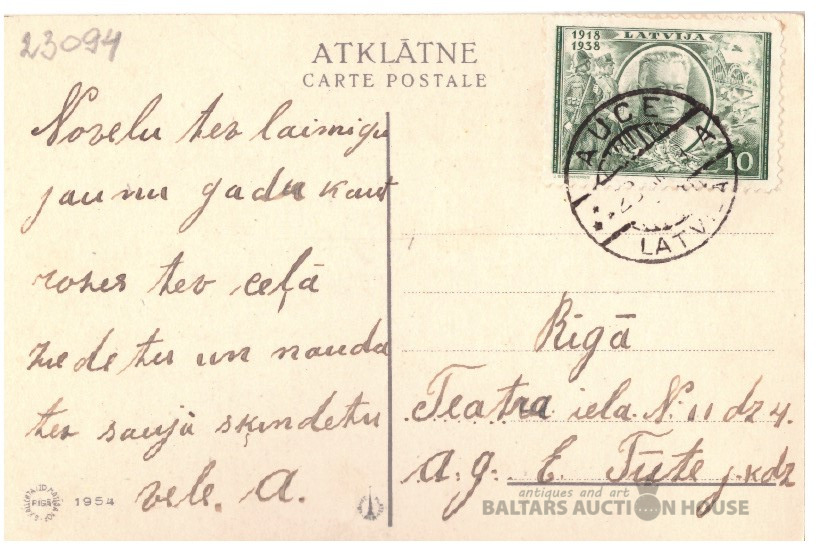 23094
ATKLĀTNE
CARTE POSTALE
1918
1938
LATVIJA
10
AUCE
LATVIJA
Novelu tev laimigu
jaunu gadu kaut
rozes tev ceļā
ziedetu un nauda
tev saujā skindetu
vele. A.
Rīgā
Teatra iela N. 11 dz 4.
A. g. E. Tūte j. kdz
RIGĀ
1954
antiques and art
BALTARS AUCTION HOUSE